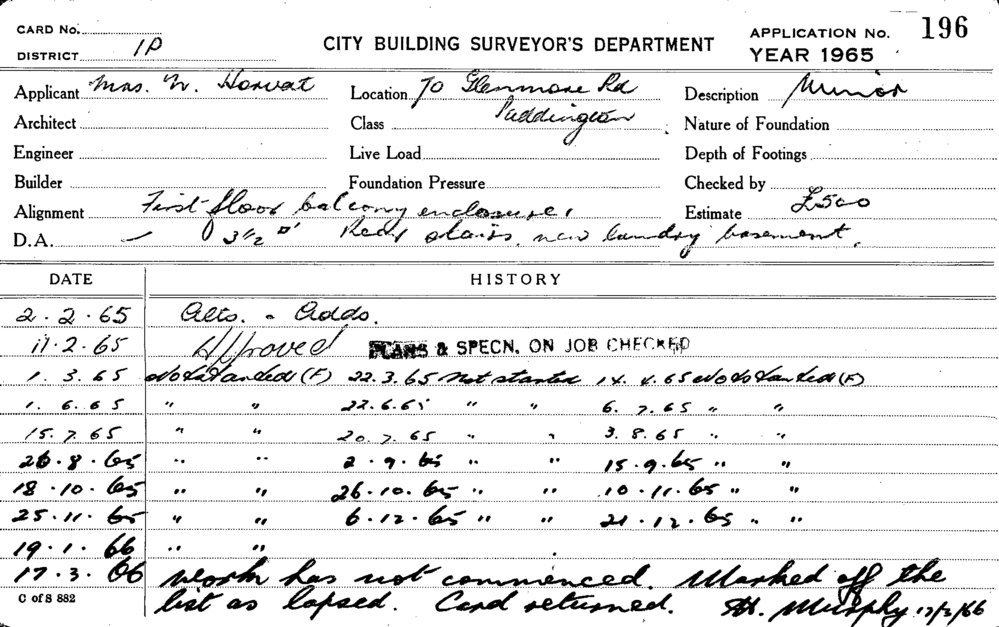 CARD No. CITY BUILDING SURVEYOR'S DEPARTMENT APPLICATION No. 196
DISTRICT 1P YEAR 1965
Applicant Mrs. N. Horvat Location 70 Glenmore Rd Description Minor
Architect Class Paddington Nature of Foundation
Engineer Live Load Depth of Footings
Builder Foundation Pressure Checked by
Alignment First floor balcony enclosure, Estimate £500
D.A. — 3½ Rear stairs, new laundry basement.
DATE HISTORY
2.2.65 Alts. & Adds.
11.2.65 Approved PLANS & SPECN. ON JOB CHECKED
1.3.65 Not Started (F) 22.3.65 Not started 14.4.65 Not Started (F)
1.6.65 " " 22.6.65 " " 6.7.65 " "
15.7.65 " " 20.7.65 " " 3.8.65 " "
26.8.65 " " 2.9.65 " " 15.9.65 " "
18.10.65 " " 26.10.65 " " 10.11.65 " "
25.11.65 " " 6.12.65 " " 21.12.65 " "
19.1.66 " "
17.3.66 Work has not commenced. Marked off the
C of S 882 list as lapsed. Card returned. Murphy 17/3/66